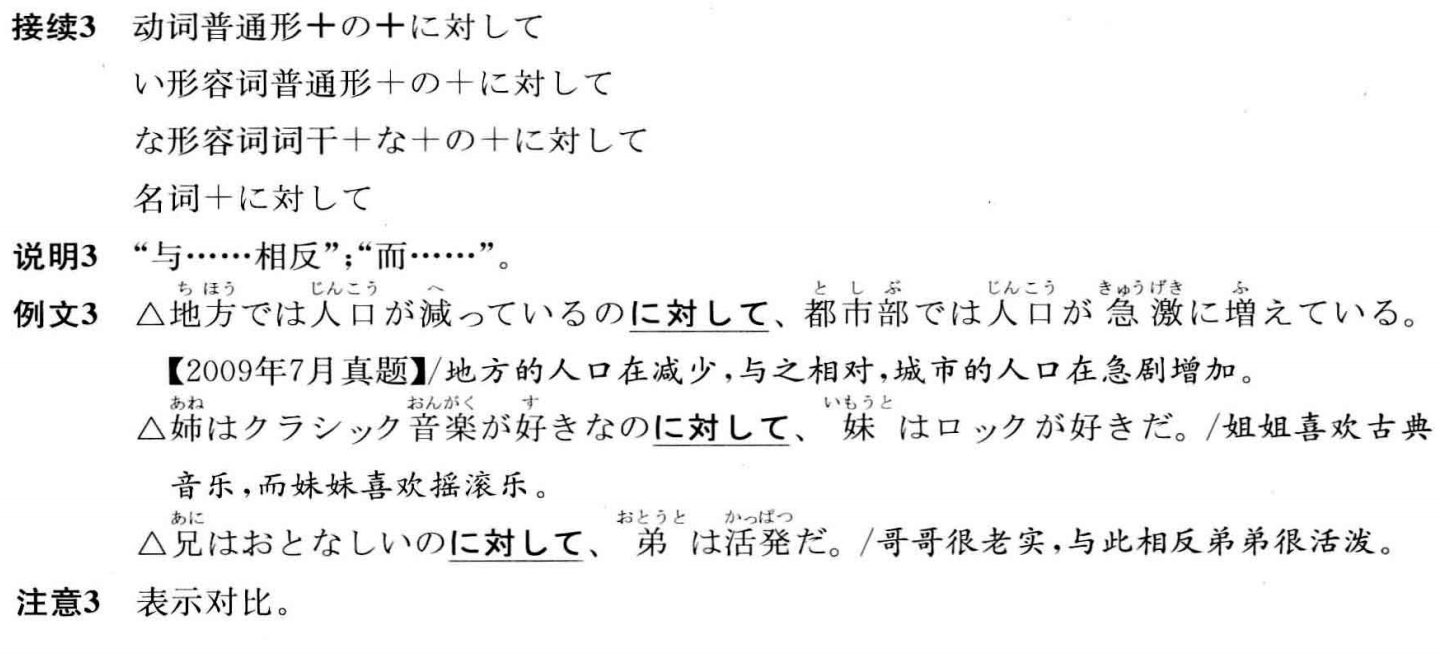 接续3 动词普通形＋の＋に対して
い形容词普通形＋の＋に対して
な形容词词干＋な＋の＋に対して
名词＋に対して
说明3 “与……相反”；“而……”。
ち ほう じんこう へ と し ぶ じんこう きゅうげき ふ
例文3 △地方では人口が減っているのに対して、都市部では人口が急激に増えている。
【2009年7月真题】/地方的人口在减少，与之相对，城市的人口在急剧增加。
あね おんがく す いもうと
△姉はクラシック音楽が好きなのに対して、妹はロックが好きだ。/姐姐喜欢古典
音乐，而妹妹喜欢摇滚乐。
あに おとうと かっぱつ
△兄はおとなしいのに対して、弟は活発だ。/哥哥很老实，与此相反弟弟很活泼。
注意3 表示对比。